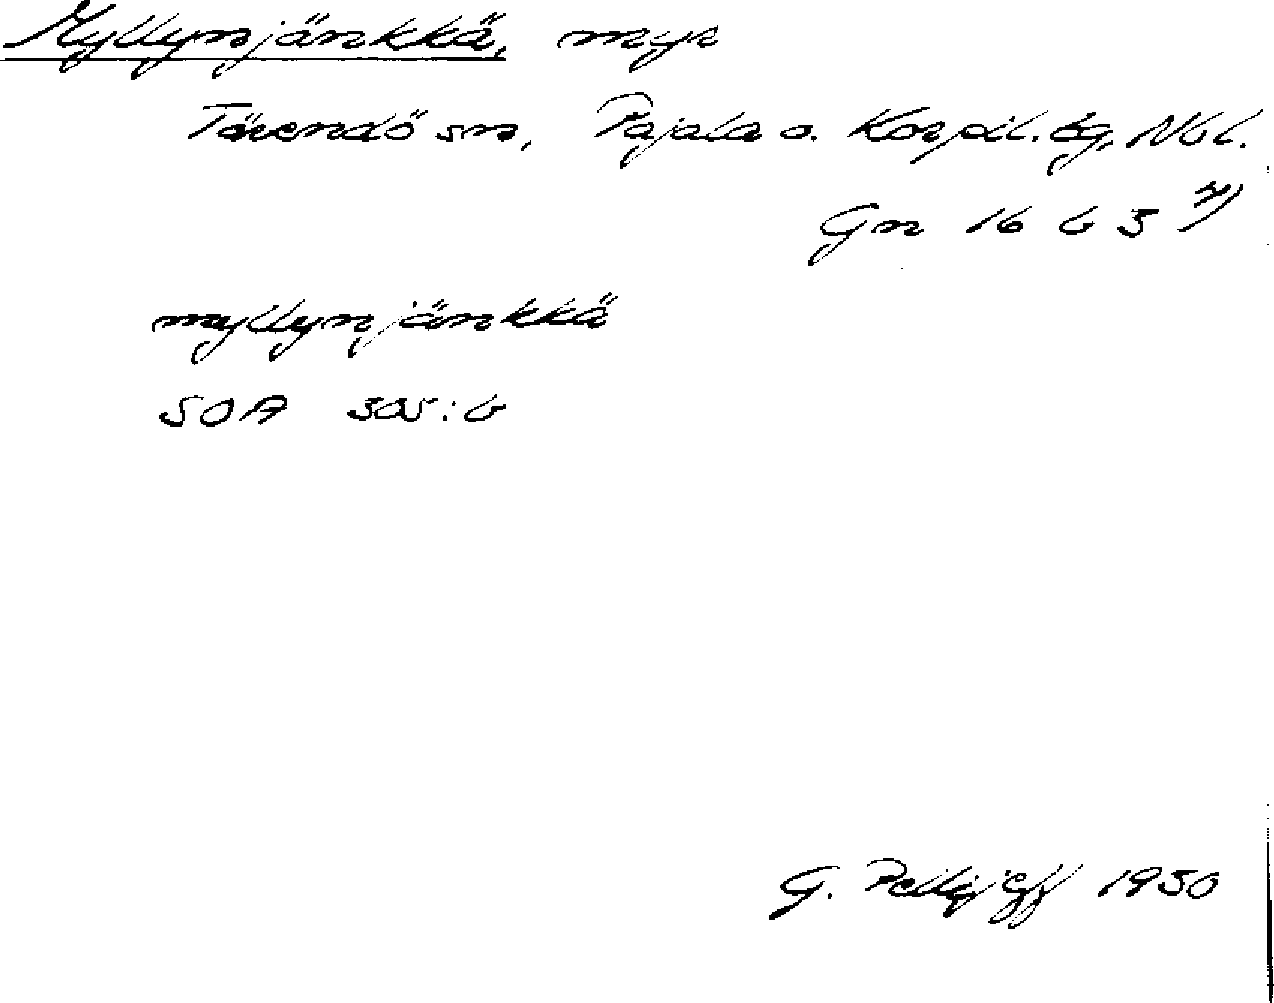 Myllynjänkkä, myr
Tärendö sn, Pajala o. Korpil. tg, Nbl.
Gn 16 b 3
myllynjänkkä
SOA 305:6
G. Pellijeff 1950